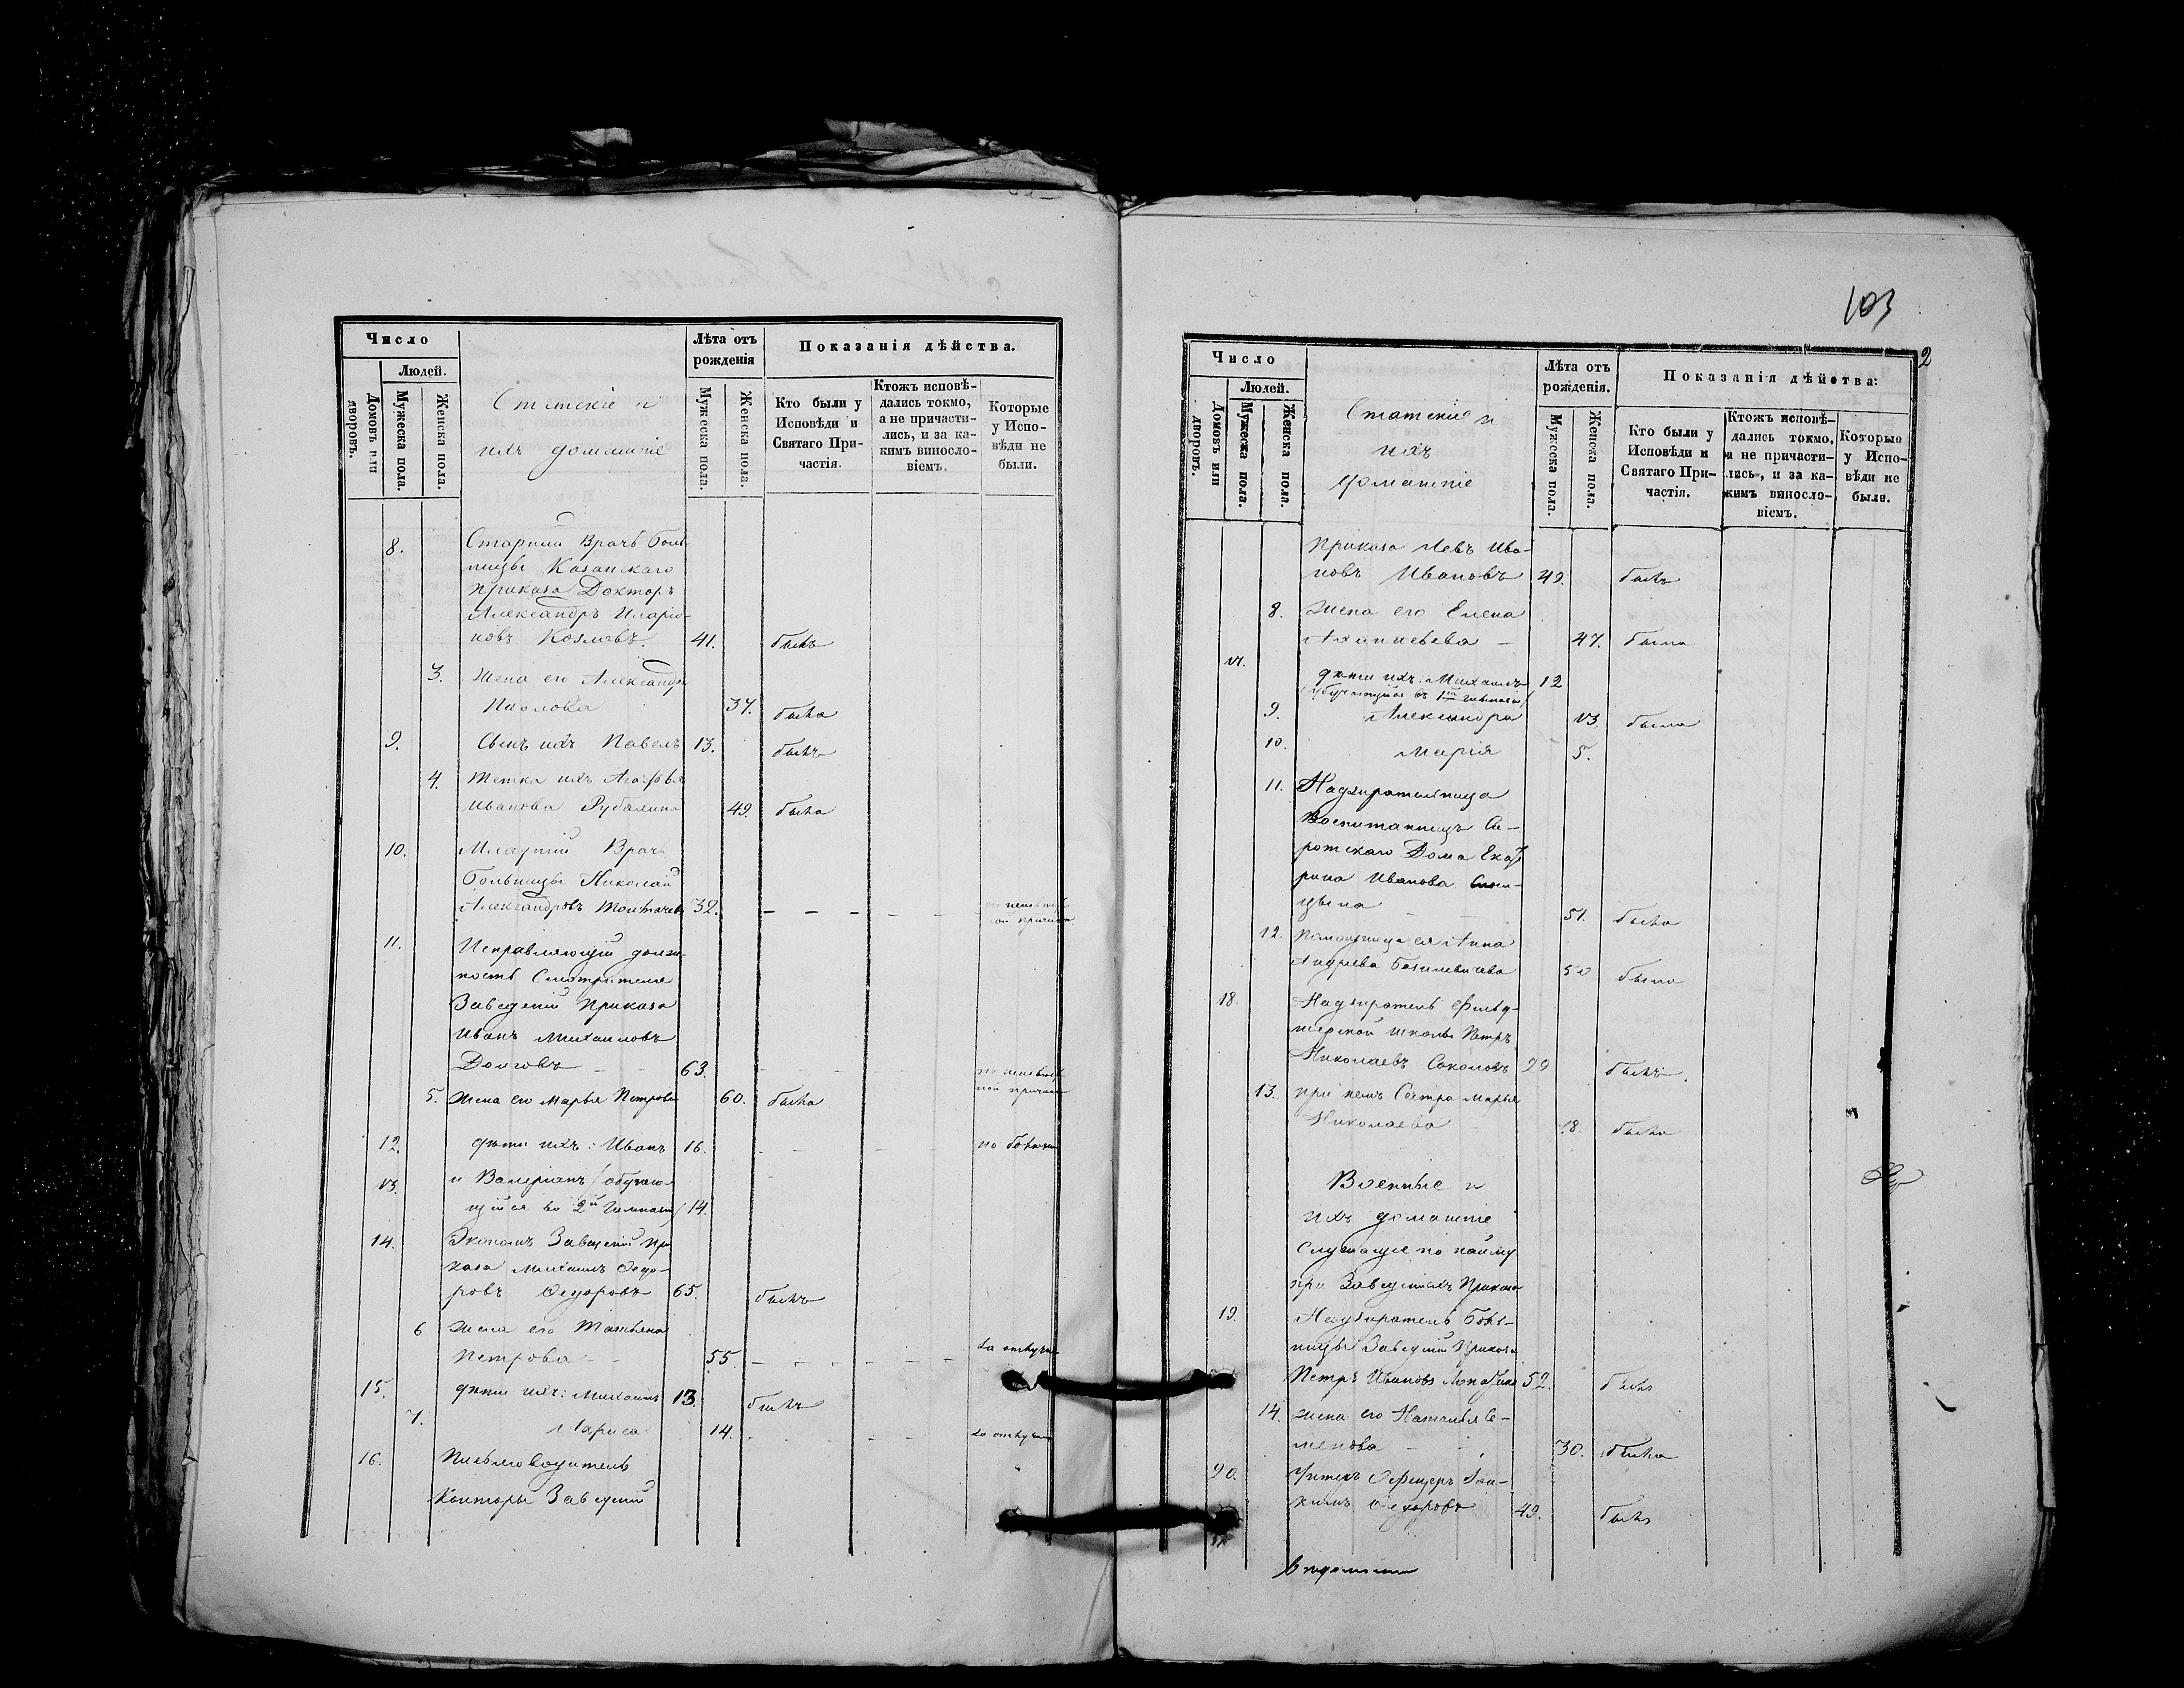 Число
Людей.
Домовъ или дворовъ.
Мужеска пола.
Женска пола.
Статскіе и
ихъ домашніе
Лѣта отъ
рожденія
Мужеска пола.
Женска пола.
Показанія дѣйства.
Кто были у
Исповѣди и
Святаго При-
частія.
Ктожъ исповѣ-
дались токмо,
а не причасти-
лись, и за ка-
кимъ винословіемъ.
Которые
у Испо-
вѣди не
были.
8. Старшій Врачъ Боль-
ницы Казанскаго
Приказа Докторъ
Александръ Иларіо-
новъ Козловъ. 41. былъ
3. Жена его Александра
Павлова 37. была
9. Сынъ ихъ Павелъ 13. былъ
4. Тетка ихъ Агафья
Иванова 49. была
10. Младшій Врачъ
Больницы Николай
Александровъ Толмачевъ 32. – – –
11. Исправляющій долж-
ность Смотрителя
Заведеній Приказа
Иванъ Михаиловъ
Долговъ – – 63. – –
5. Жена его Марья Петрова 60. была
12. дѣти ихъ: Иванъ 16. – – по болѣзни
13. и Валеріанъ /обучаю-
щійся во 2й Гимназіи/ 14.
14. Экономъ Заведеній При
каза Михаилъ Ѳедо-
ровъ Ѳедоровъ 65. былъ
6 Жена его Татьяна
Петрова – – 55. – – – – – за отлуч.
15. дѣти ихъ: Михаилъ 13. былъ
7. Лариса 14. – – – за отлуч.
16. Письмоводитель
Конторы Заведеній
103
2
Число
Людей.
Домовъ или дворовъ.
Мужеска пола.
Женска пола.
Статскіе и
ихъ
домашніе
Лѣта отъ
рожденія.
Мужеска пола.
Женска пола.
Показанія дѣйства:
Кто были у
Исповѣди и
Святаго При-
частія.
Ктожъ исповѣ-
дались токмо,
а не причасти-
лись, и за ка-
кимъ винословіемъ.
Которые
у Испо-
вѣди не
были.
Приказа Левъ Ива-
новъ Ивановъ 49. былъ
8. Жена его Елена
Аѳанасьева – 47. была
17. дѣти ихъ: Михаилъ 12
/обучающійся въ 1й гимназіи/
9. Александра 13. была
10. Марія 5.
11. Надзирательница
Воспитанницъ Си-
ротскаго Дома Екате
рина Иванова
цына – – 51. была
12. Помощница ея Анна
Андреева Базилевичева 50 была
18. Надзиратель Фельд-
шерской школы Петръ
Николаевъ Соколовъ 29 былъ.
13. При немъ Сестра Марья
Николаева 18. была
Военные и
ихъ домашніе
Служащіе по найму
при Заведеніяхъ Приказа
19. Надзиратель Боль-
ницы Заведеній Приказа
Петръ Ивановъ 52. былъ
14. Жена его Наталья Се-
менова – – 30. была
20. Унтеръ Офицеръ
Ѳедоровъ 49. былъ